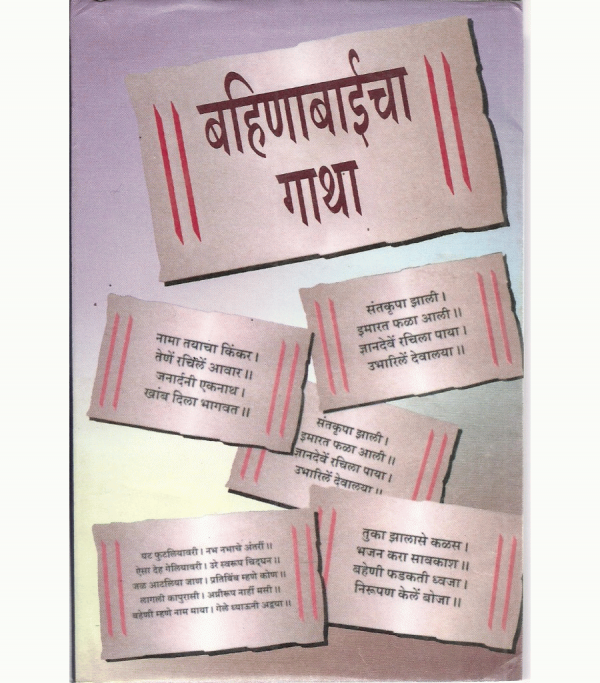 ॥ बहिणाबाईचा ॥
गाथा
संतकृपा झाली ।
इमारत फळा आली ॥
ज्ञानदेवें रचिला पाया ।
उभारिलें देवालया ॥
नामा तयाचा किंकर ।
तेणें रचिलें आवार ॥
जनार्दनी एकनाथ ।
खांब दिला भागवत ॥
संतकृपा झाली ।
इमारत फळा आली ॥
ज्ञानदेवें रचिला पाया ।
उभारिलें देवालया ॥
घट फुटलियावरी । नभ नभाचे अंतरीं ॥
ऐसा देह गेलियावरी । उरे स्वरूप चिद्घन ॥
जळ आटलिया जाण । प्रतिबिंब म्हणे कोण ॥
लागली कापुरासी । अग्नीरूप नाहीं मसी ॥
बहेणी म्हणे नाम माया । गेले ध्याऊनी अद्वया ॥
तुका झालासे कळस ।
भजन करा सावकाश ॥
बहेणी फडकती ध्वजा ।
निरूपण केलें बोजा ॥